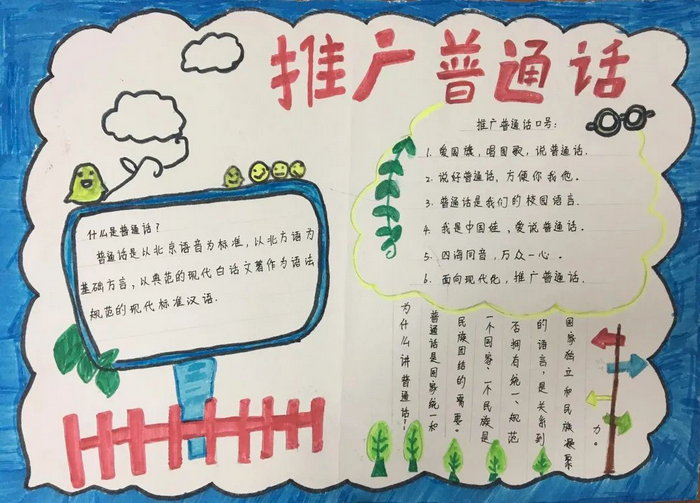 推广普通话
什么是普通话？
普通话是以北京语音为标准，以北方语为
基础方言，以典范的现代白话文著作为语法
规范的现代标准汉语.
推广普通话口号：
1. 爱国旗，唱国歌，说普通话.
2. 说好普通话，方便你我他。
3. 普通话是我们的校园语言.
4. 我是中国娃，爱说普通话.
5. 四海同音，万众一心。
6. 面向现代化，推广普通话.
为什么讲普通话？
普通话是国家统一和
民族团结的需要。
一个国家、一个民族是
否拥有统一、规范
的语言，是关系到
国家独立和民族凝聚
力。